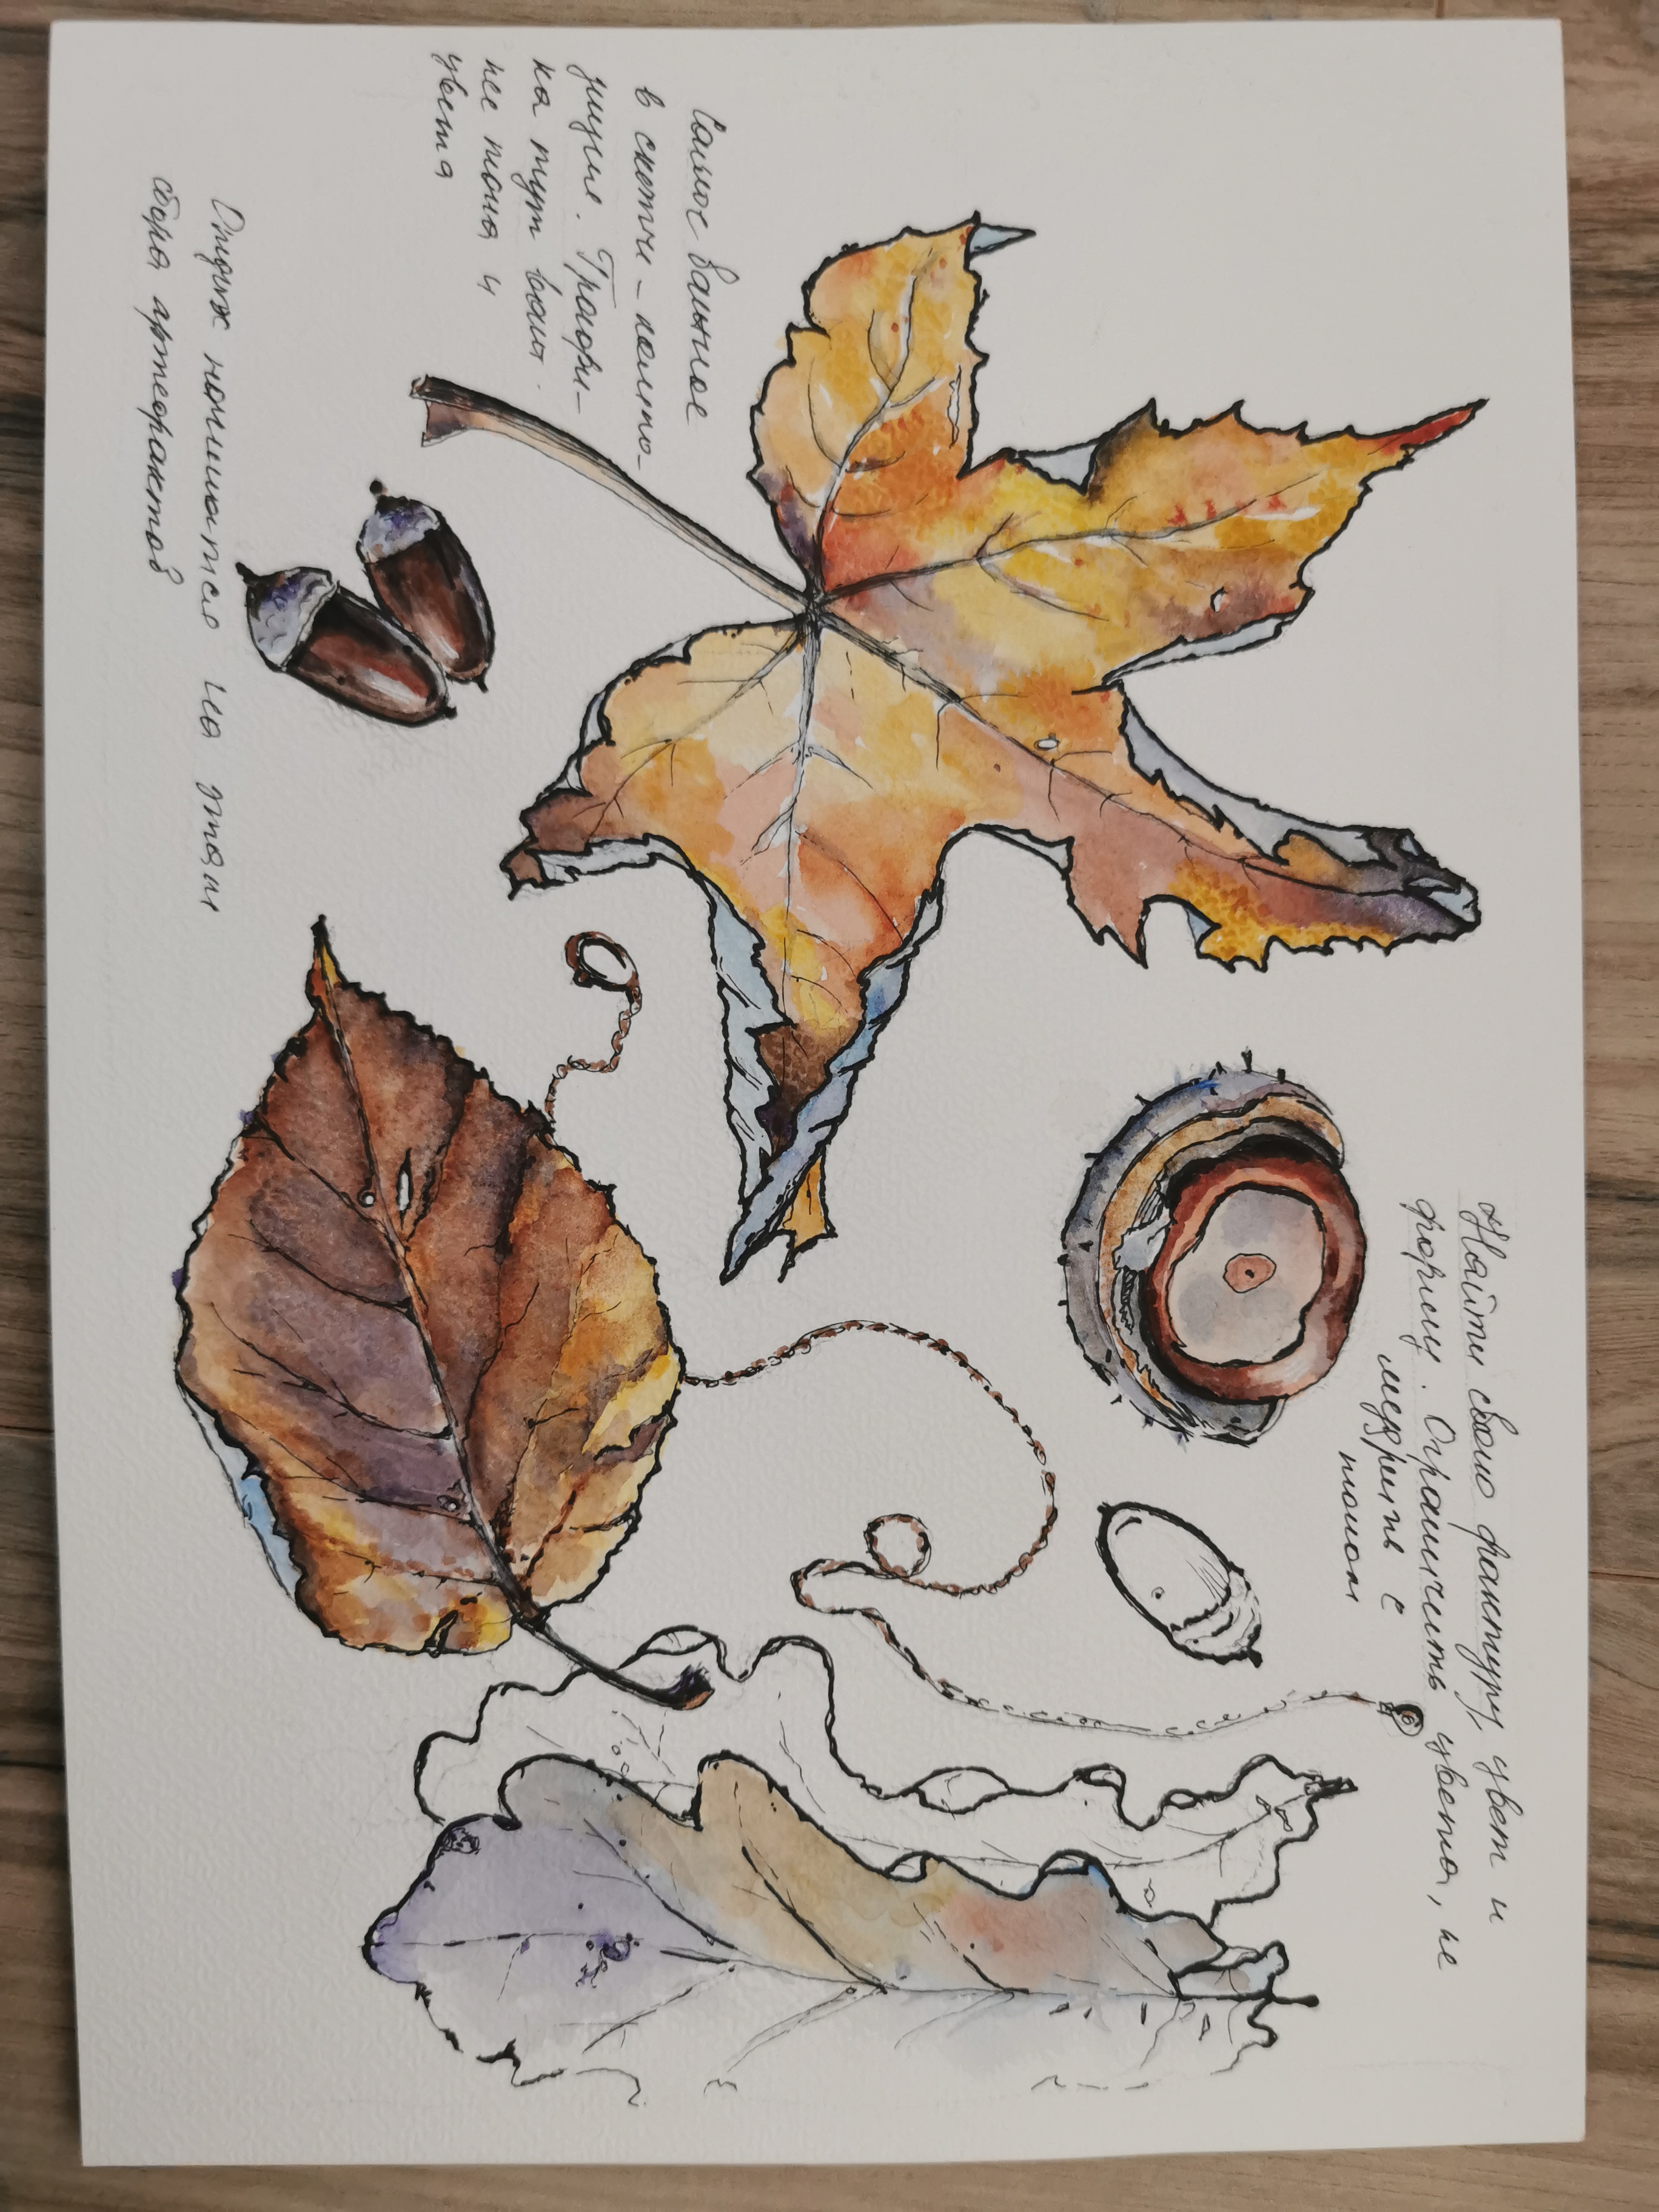 Найти свою фактуру, цвет и
форму. Ограничить цвета, не
мудрить с
тоном
Самое важное
в скетче - компо-
зиция. Графи-
ка тут важ
нее тона и
цвета
Отдых начинается на этапе
сбора артефактов